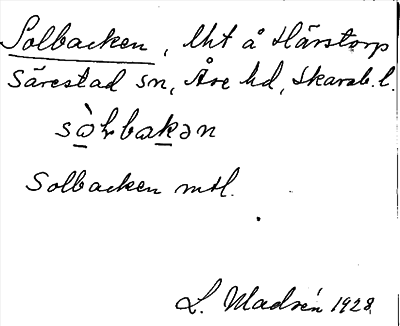 Solbacken, lht å Härstorp
Särestad sn, Åse hd, Skarab. l.
sòɫbakən
Solbacken mtl.
L. Madsén 1928